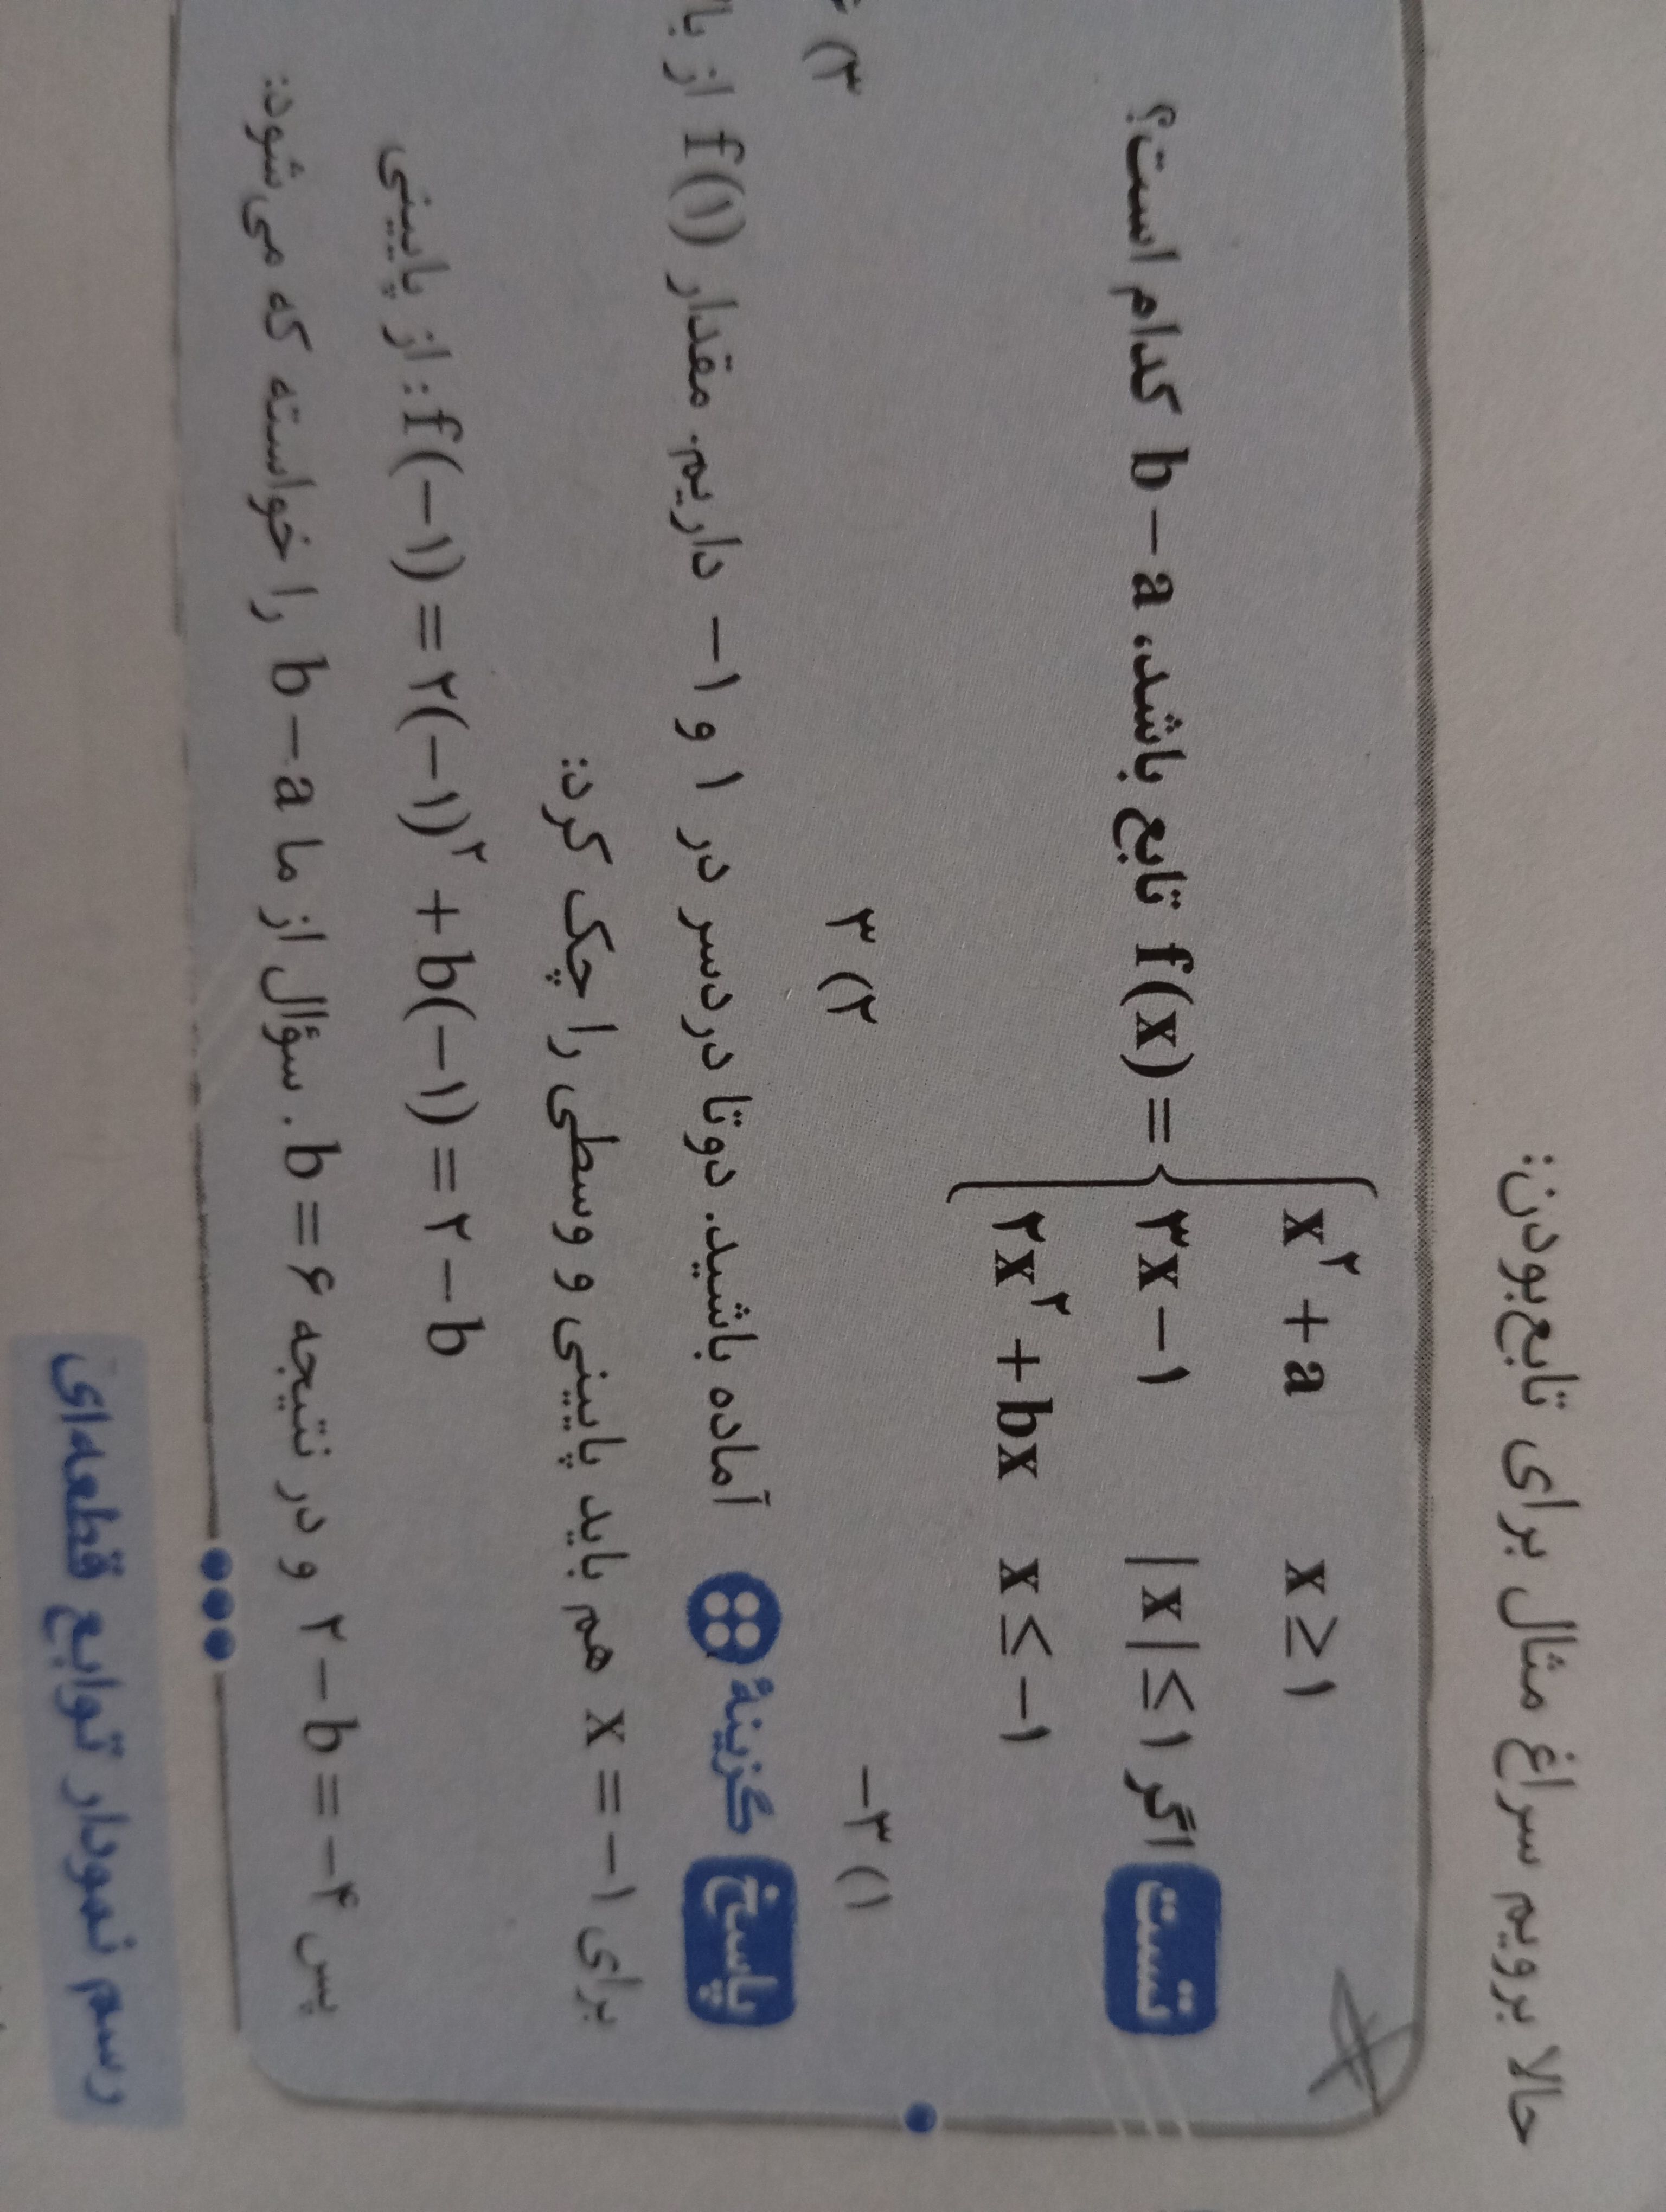 حالا برویم سراغ مثال برای تابع‌بودن:
x² + a    x ≥ ۱
تست اگر f(x) = { ۳x − ۱    |x| ≤ ۱ تابع باشد، b − a کدام است؟
۲x² + bx    x ≤ −۱
۱) −۳    ۲) ۳    ۳)
پاسخ گزینهٔ آماده باشید. دوتا دردسر در ۱ و −۱ داریم. مقدار f(۱) از
برای x = −۱ هم باید پایینی و وسطی را چک کرد:
از پایینی: f(−۱) = ۲(−۱)² + b(−۱) = ۲ − b
پس ۲ − b = −۴ و در نتیجه b = ۶. سؤال از ما b − a را خواسته که می‌شود:
رسم نمودار توابع قطعه‌ای